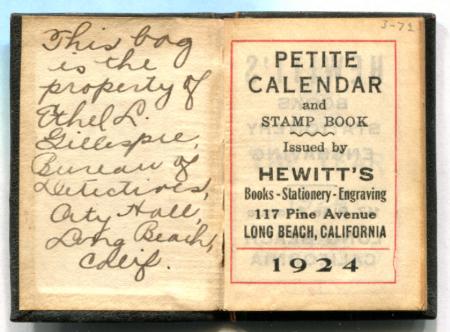 This bag
is the
property of
Ethel L.
Gillespie,
Bureau of
Detectives,
City Hall,
Long Beach,
Calif.
3-72
PETITE
CALENDAR
and
STAMP BOOK
Issued by
HEWITT'S
Books-Stationery-Engraving
117 Pine Avenue
LONG BEACH, CALIFORNIA
1924